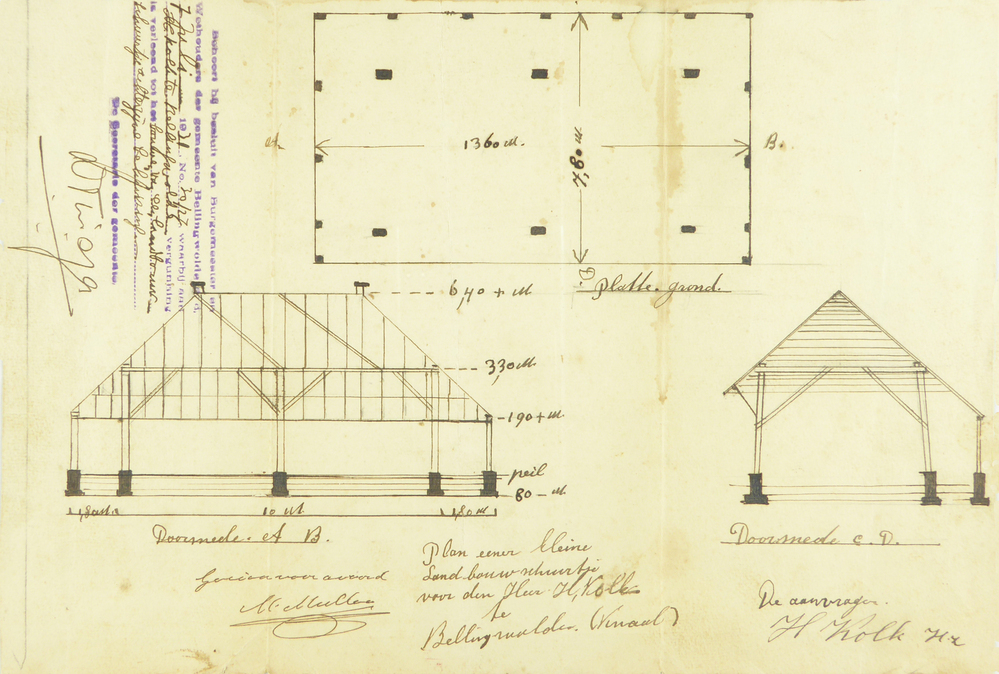 Behoort bij besluit van Burgemeester en
Wethouders der gemeente Bellingwolde, d.d.
7 Juli 1921 No. waarbij aan
H. Kolk te Bellingwolde vergunning
is verleend tot het bouwen van
De Secretaris der gemeente,
A. B.
1360 M.
7,80 M
D.
Platte-grond.
6,40 + M
3,30 M
-190 + M
peil
80 - M
1,80 M. 10 M 1,80 M
Doorsnede. A B.
Doorsnede C. D.
Goed voor accoord
M. Mulder
Plan eener kleine
Landbouwschuurtje
voor den Heer H, Kolk
te
Bellingwolde.
De aanvrager.
H Kolk Hz